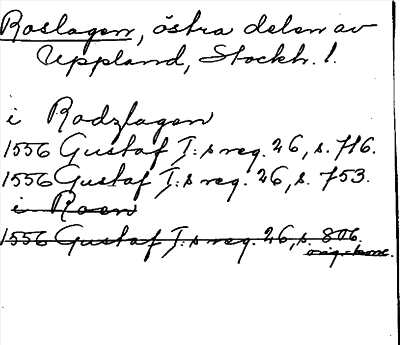 Roslagen, östra delen av
Uppland, Stockh. l.
i Rodzlagen
1556 Gustaf I:s reg. 26, s. 716.
1556 Gustaf I:s reg. 26, s. 753.
i Roen
1556 Gustaf I:s reg. 26, s. 806.
orig. konc.